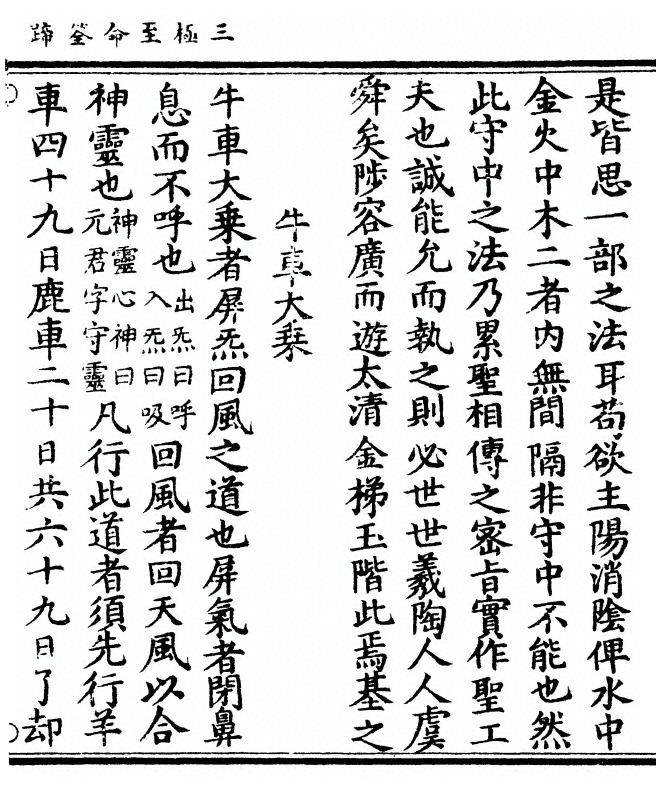 三極至命筌蹄
是皆思一部之法耳苟欲主陽消陰俾水中
金火中木二者内無間隔非守中不能也然
此守中之法乃累聖相傳之密旨實作聖工
夫也誠能允而執之則必世世羲陶人人虞
舜矣陟容廣而遊太清金梯玉階此焉基之
牛車大乗
牛車大乗者屏炁回風之道也屏氣者閉鼻
息而不呼也出炁曰呼入炁曰吸回風者回天風以合
神靈也神靈心神曰元君字守靈凡行此道者須先行羊
車四十九日鹿車二十日共六十九日了却